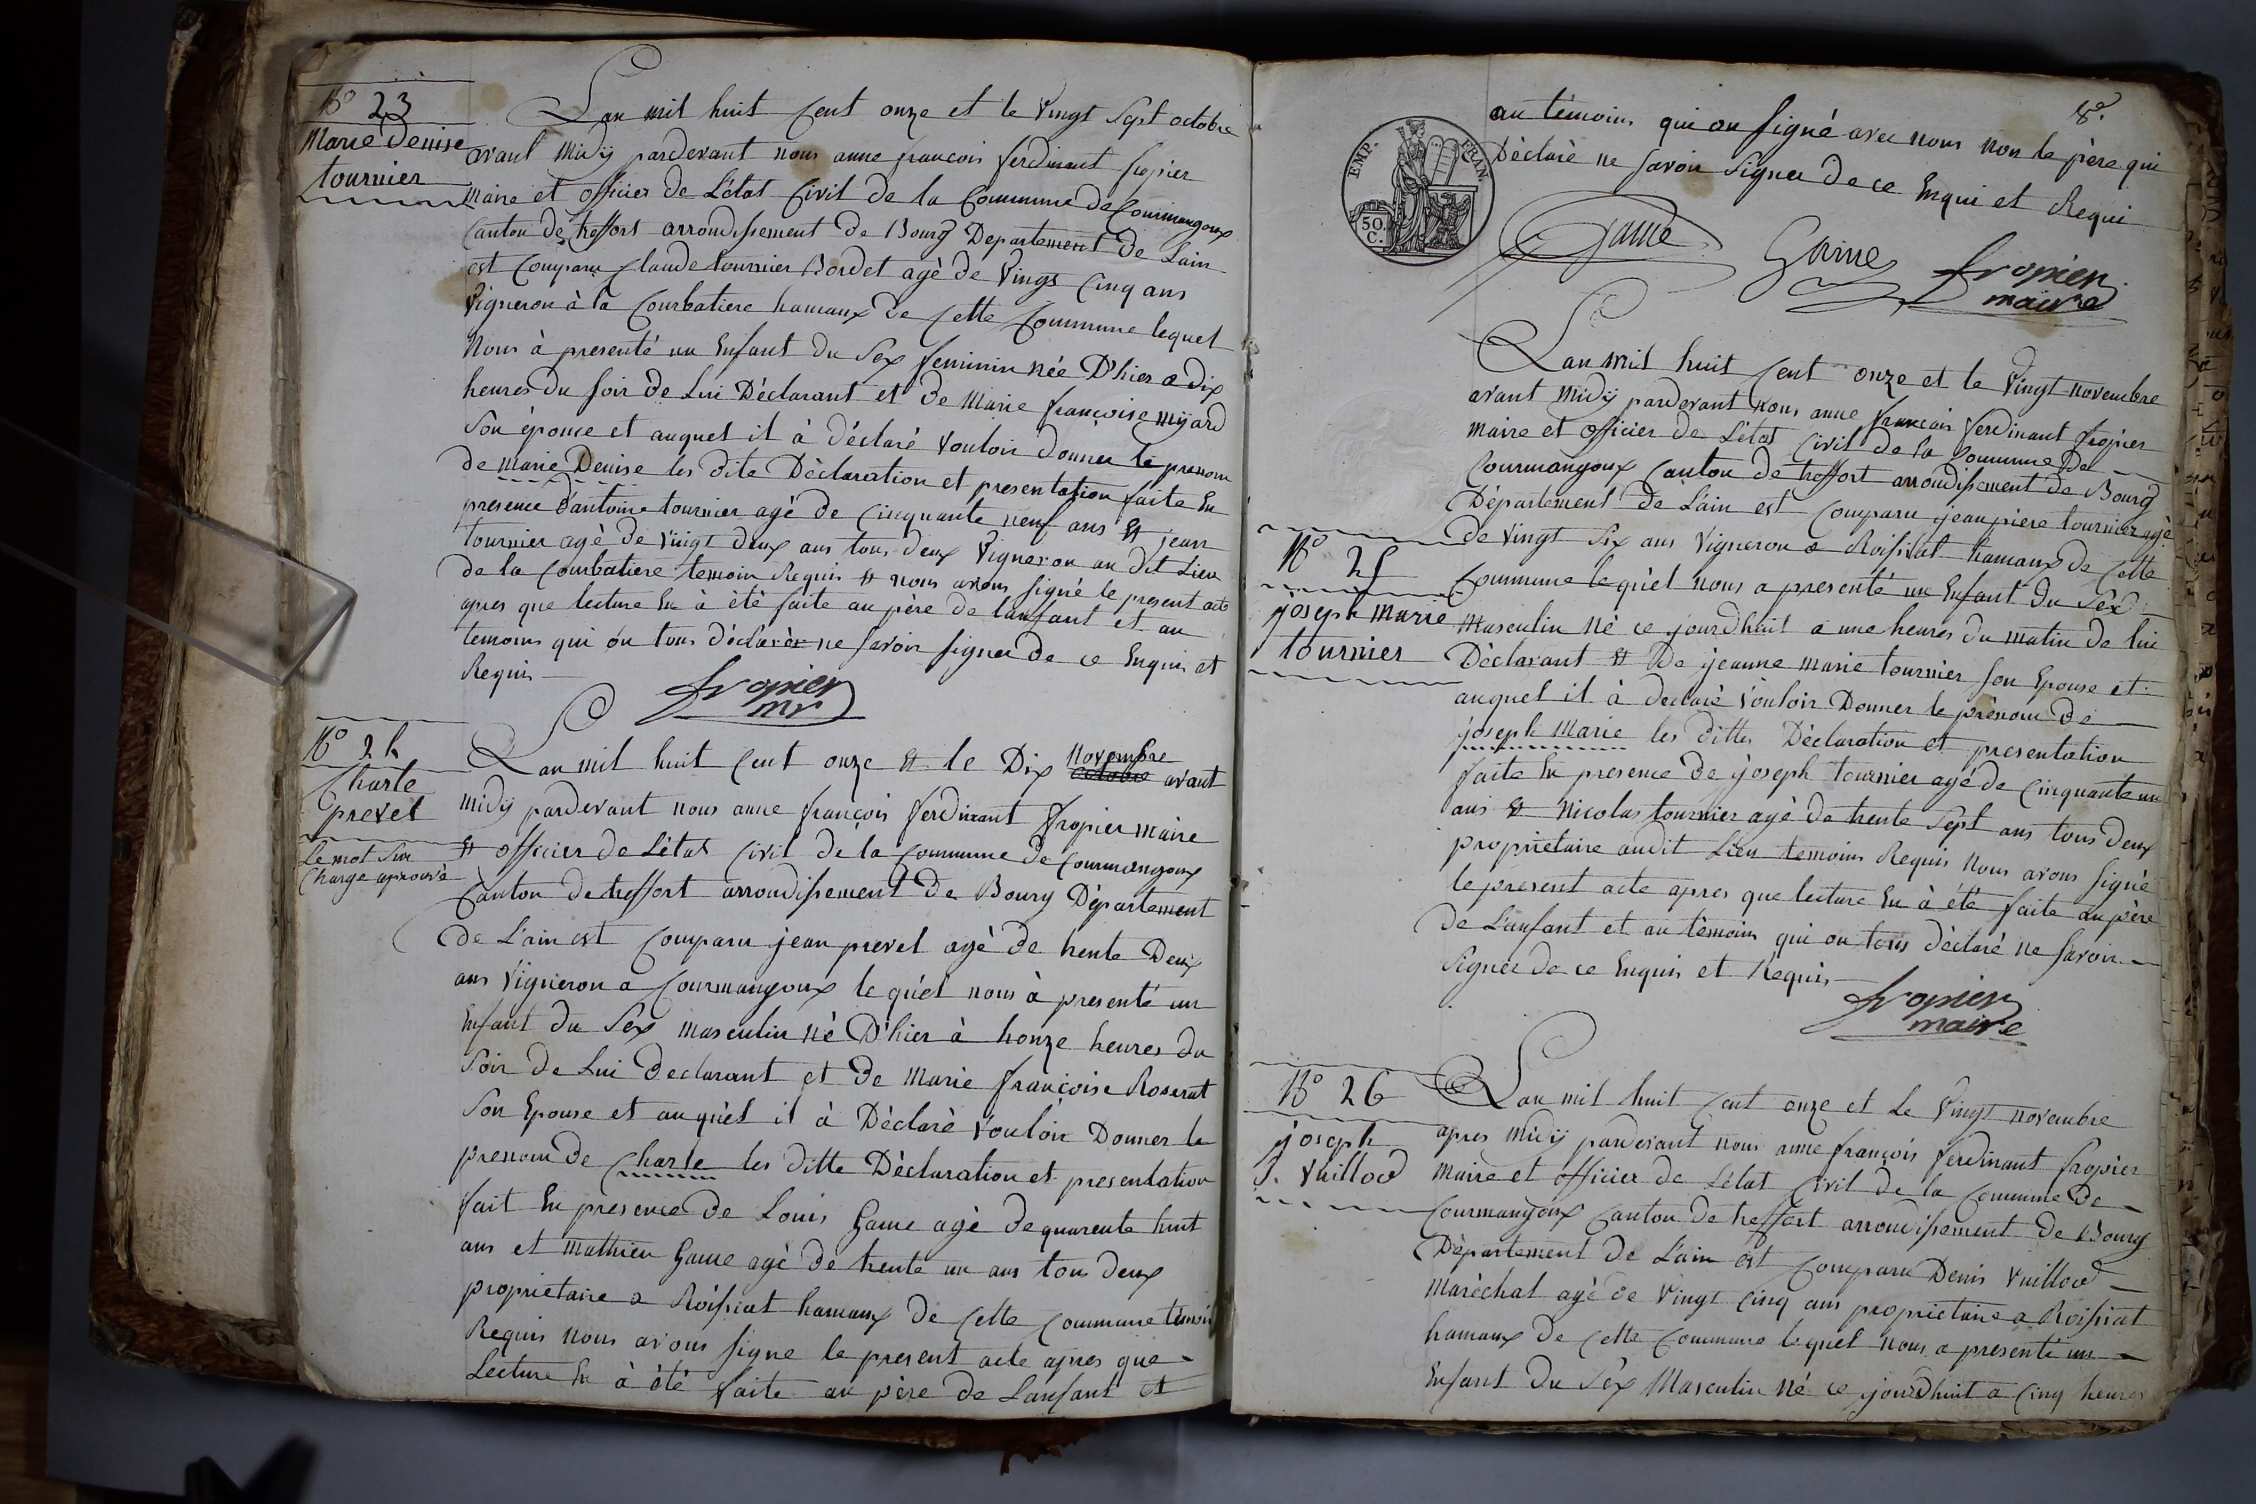 No 23
Marie Denise
tournier
Lan mil huit Cent onze et le Vingt Sept octobre
avant Midÿ pardevant nous anne francois ferdinant fropier
maire et officier de L'état Civil de la Commune de Courmangoux
Canton de treffort arrondissement de Bourg Departement de Lain
est Comparu Claude tournier Bordet agè de Vingt Cinq ans
Vigneron à la Courbatiere hamaux de Cette Commune lequel
Nous à presenté un Enfant du Sex feminin née D'hier a dix
heures du soir de Lui Déclarant et de Marie françoise myard
Son épouse et auquel il à déclaré Vouloir donner le prenom
de marie Denise les dite Dèclaration et presentation faite En
presence d'antoine tournier agè de Cinquante neuf ans Et jean
tournier agè de Vingt deux ans tous deux Vigneron au dit Lieu
de la Courbatiere temoin Requis Et nous avons signé le present acte
apres que lecture En à étè faite au père de lanfant et au
temoins qui on tous déclarér ne savoir signer de ce Enquis et
Requis
fropier
mr
No 24
Charle
prevel
Le mot Sur
Charge aprouvè
Lan mil huit Cent onze Et le Dix novembre
octobre avant
midÿ pardevant nous anne françois ferdinant fropier maire
Et officier de L'état Civil de la Commune de Courmangoux
Canton de treffort arrondissement de Bourg Département
de L'ain est Comparu jean prevel agè de trente Deux
ans Vigneron a Courmangoux le quèl nous à presenté un
Enfant du Sex masculin né D'hier à honze heures du
Soir de Lui declarant et de Marie françoise Roserat
Son Epouse et auquèl il à Dèclaré Vouloir Donner le
prenom de Charle les ditte Dèclaration et presentation
fait En presence de Louis Game agè de quarente huit
ans et Mathieu Game agè de trente un ans tous deux
proprietaire a Roissiat hamaux de Cette Commune témoin
Requis nous avons signe le present acte apres que
Lecture En à été faite au père de Lanfant Et
8e.
EMP. FRAN.
50 C.
au tèmoins qui on signé avec nous non le père qui
Dèclarè ne savoir Signer de ce Enqui et Requi
Game Game fropier
maire
No 25
joseph marie
tournier
Lan mil huit Cent onze et le Vingt novembre
avant Midÿ pardevant nous anne francois ferdinant fropier
maire et officier de L'état Civil de la Commune de
Courmangoux Canton de treffort arrondissement de Bourg
Département de Lain est Comparu jean piere tournier agè
de Vingt Six ans Vigneron a Roissiat hamaux de Cette
Commune le quèl nous a presenté un Enfant du Sex
masculin né ce jourdhuit a une heures du matin de lui
Déclarant Et de jeanne marie tournier son Epouse et
auquel il à declaré Vouloir Donner le prènom de
joseph Marie les dittes Dèclaration et presentation
faite En presence de joseph tournier agé de Cinquante un
ans Et Nicolas tournier agè de trente Sept ans tous deux
proprietaire audit Lieu temoins Requis Nous avons signè
le present acte apres que lecture En à été faite au père
de L'anfant et au tèmoins qui on tous dèclaré ne savoir
Signer de ce Enquis et Requis
fropier
maire
No 26
joseph
Vuillod
Lan mil huit Cent onze et Le Vingt novembre
apres Midÿ pardevant nous anne françois ferdinant fropier
Maire et officier de L'état Civil de la Commune de
Courmangoux Canton de treffort arrondissement de Bourg
Département de Lain est Comparu Denis Vuillod
Maréchal agè de Vingt Cinq ans proprietaire a Roissiat
hamaux de Cette Commune le quel nous a presenté un
Enfant du Sex Masculin né ce jourdhuit a Cinq heures